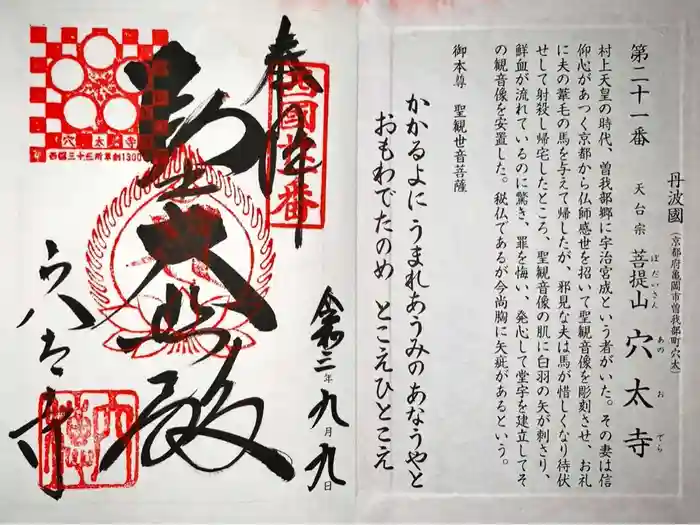 丹波國(京都府亀岡市曽我部町穴太)
第二十一番 天台宗 菩提山 穴太寺
ぼだいさん あのおでら
村上天皇の時代、曽我部郷に宇治宮成という者がいた。その妻は信
仰心があつく京都から仏師感世を招いて聖観音像を彫刻させ、お礼
に夫の葦毛の馬を与えて帰したが、邪見な夫は馬が惜しくなり待伏
せして射殺し帰宅したところ、聖観音像の肌に白羽の矢が刺さり、
鮮血が流れているのに驚き、罪を悔い、発心して堂宇を建立してそ
の観音像を安置した。秘仏であるが今尚胸に矢疵があるという。
御本尊 聖観世音菩薩
かかるよに うまれあうみのあなうやと
おもわでたのめ とこえひとこえ
奉拝
令和二年九月九日
大悲殿
穴太寺
穴太寺
西国三十三所草創1300年